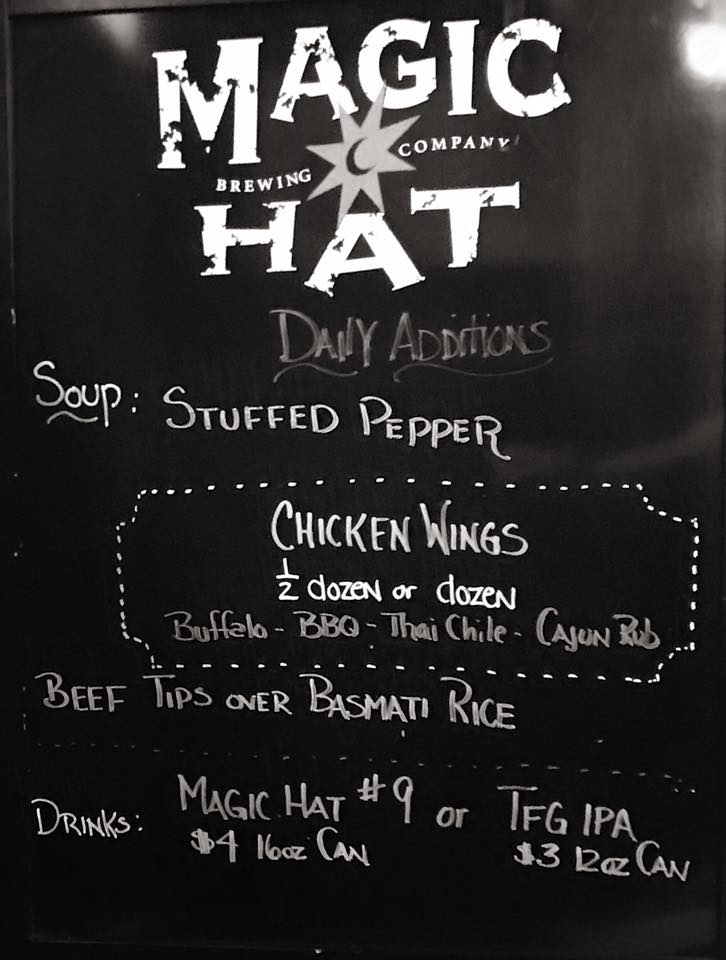 MAGIC
BREWING COMPANY
HAT
DAILY ADDITIONS
SOUP: STUFFED PEPPER
CHICKEN WINGS
1/2 dozen or dozen
Buffalo - BBQ - Thai Chile - CAJUN Rub
BEEF TIPS OVER BASMATI RICE
DRINKS: MAGIC HAT #9 or TFG IPA
$4 16oz CAN $3 12oz CAN